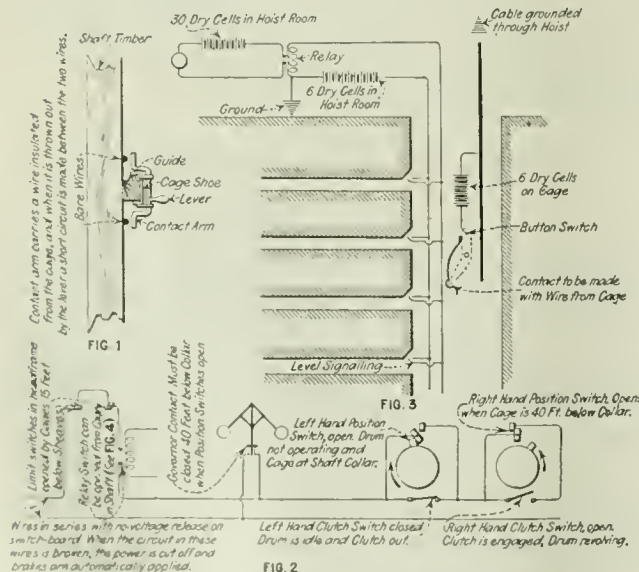 30 Dry Cells in Hoist Room
Cable grounded
through Hoist
Shaft Timber
Relay
6 Dry Cells in
Hoist Room
Ground
Contact arm carries a wire insulated
from the cage, and when it is thrown out
by the lever a short circuit is made between the two wires.
Bare Wires
Guide
Cage Shoe
Lever
Contact Arm
6 Dry Cells
on Cage
Button Switch
Contact to be made
with Wire from Cage
FIG 1
Level Signalling
FIG. 3
Limit switches in headframe
opened by Cages 15 feet
below Sheaves
Relay Switch can
be opened from Cage
in Shaft (See FIG. 4)
Governor Contact Must be
closed 40 Feet below Collar
when Position Switches open
Left Hand Position
Switch, open. Drum
not operating and
Cage at Shaft Collar.
Right Hand Position Switch, Opens
when Cage is 40 Ft. below Collar.
Wires in series with no-voltage release on
switch-board. When the circuit in these
wires is broken, the power is cut off and
brakes are automatically applied.
Left Hand Clutch Switch closed,
Drum is idle and Clutch out.
Right Hand Clutch Switch, open.
Clutch is engaged, Drum revolving.
FIG. 2